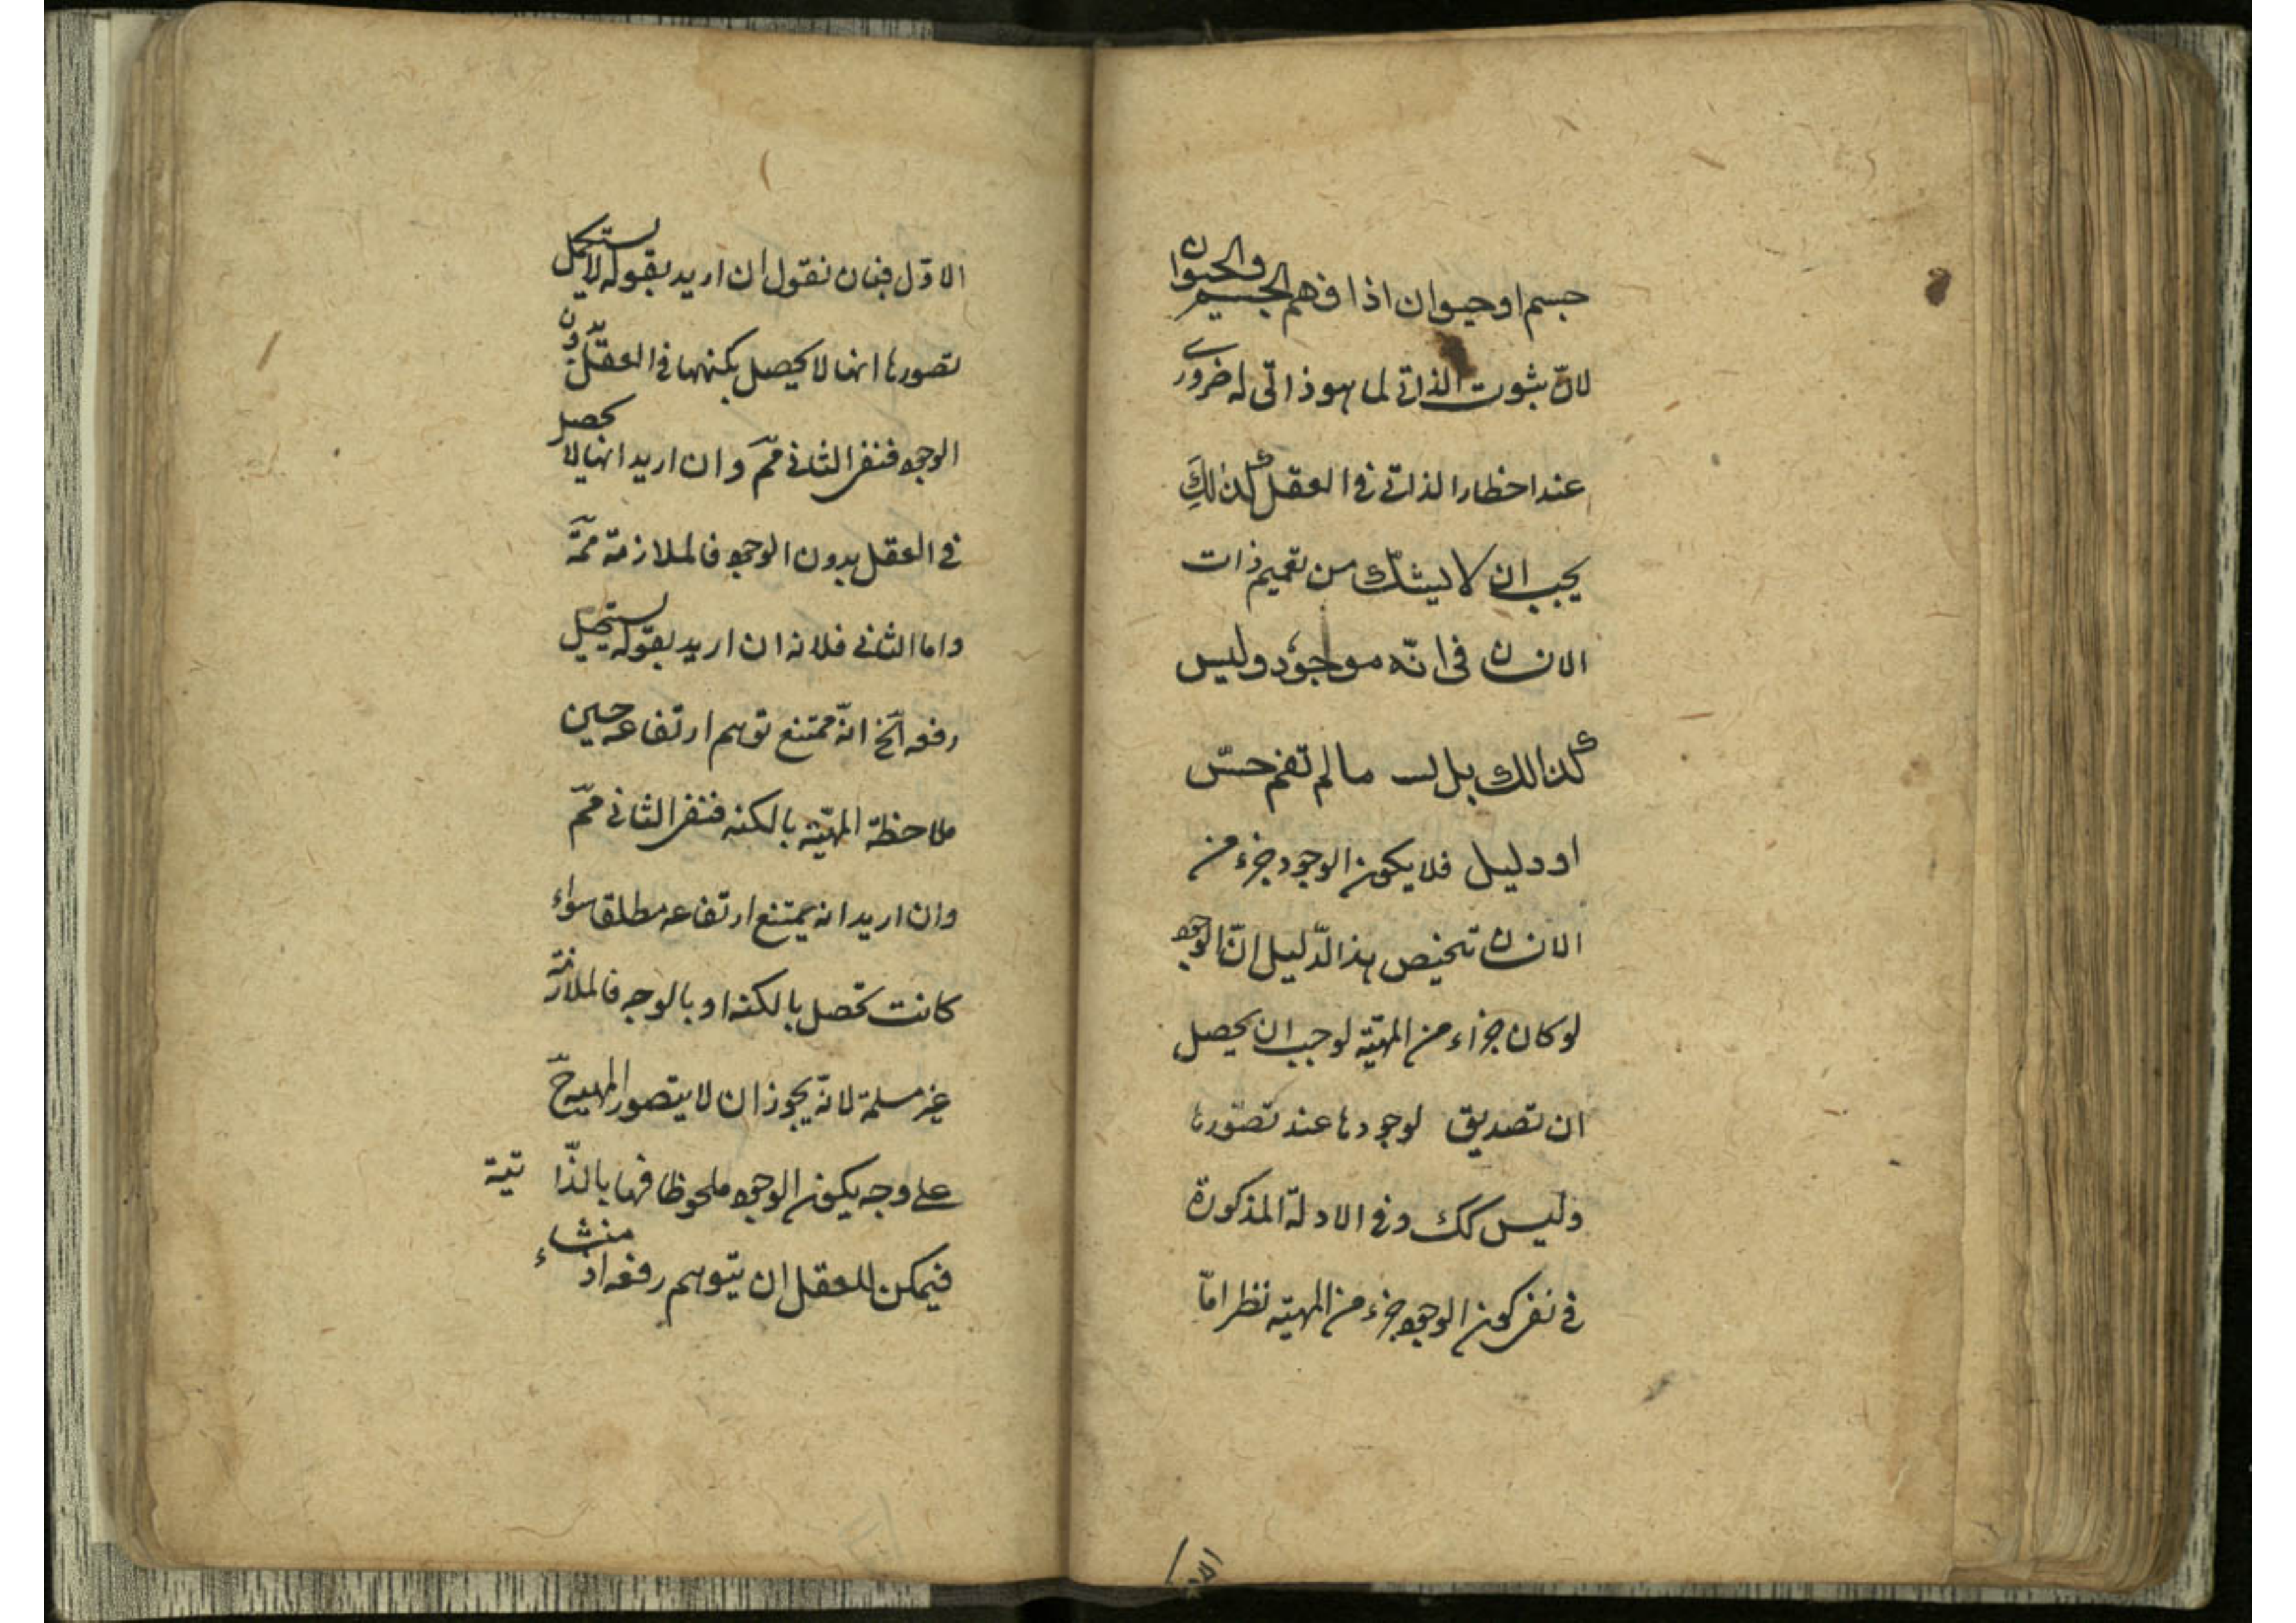 جسم او حيوان اذا فهم الجسم والحيوان
لانّ ثبوت الذاتي لما هو ذاتي له ضروري
عند اخطار الذاتي في العقل كذلك
يجب ان لا يشكّ من تعميم ذات
الانسان في انّه موجود وليس
كذالك بل لست مالم تقم حسّ
او دليل فلا يكون الوجود جزء من
الانسان تخيص هذا الدّليل انّ الوجود
لو كان جزاء من المهيّة لوجب ان يحصل
ان تصديق لوجودها عند تصوّرها
وليس كك وفي الادلّة المذكورة
في نفي كون الوجود جزء من المهيّة نظر امّا
الاوّل فبان نقول ان اريد بقوله لا يستكمل
تصورها انها لا يحصل بكنهها في العقل بدون
الوجود فنفي الثاني مم وان اريد انها لا تحصل
في العقل بدون الوجود فالملازمة ممة
واما الثاني فلانه ان اريد بقوله يستحيل
رفعه الخ انّه ممتنع توهم ارتفاعه حين
ملاحظة المهيّة بالكنه فنفي الثاني مم
وان اريد انه يمتنع ارتفاعه مطلقا سواء
كانت تحصل بالكنه او بالوجه فالملازمة
غير مسلمة لانّه يجوز ان لا يتصور المهية ح
على وجه يكون الوجود ملحوظا فيها بالذّاتية
فيمكن للعقل ان يتوهم رفعه اذ منشاء